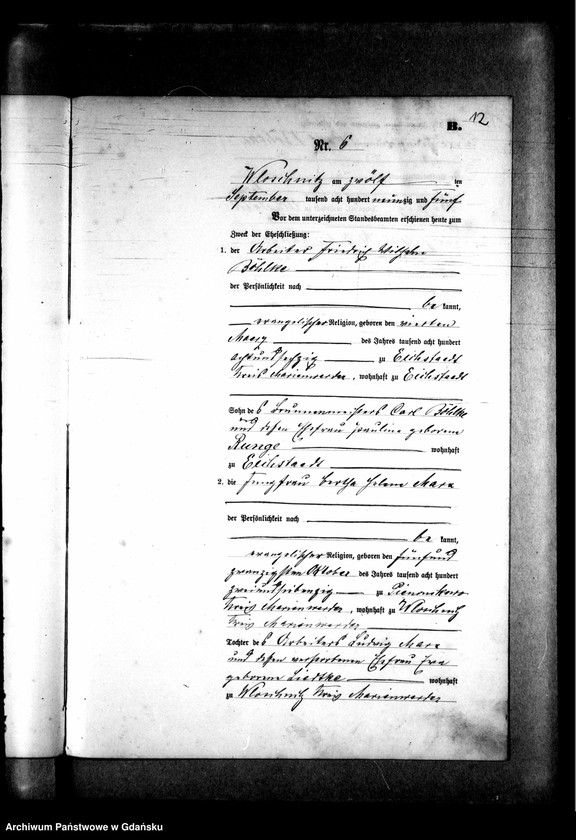 B. 12
Nr. 6
Wloschnitz am zwölf ten
September tausend acht hundert neunzig und fünf
Vor dem unterzeichneten Standesbeamten erschienen heute zum
Zweck der Eheschließung:
1. der Arbeiter Friedrich Wilhelm
Böhlke
der Persönlichkeit nach
be kannt,
evangelischer Religion, geboren den vierten
Maerz des Jahres tausend acht hundert
achtundsechzig zu
Kreis Marienwerder, wohnhaft zu
Sohn des Brunnenmeisters Carl Böhlke
und dessen Ehefrau Pauline geborene
Runge wohnhaft
zu
2. die Jungfrau Bertha Helene Marx
der Persönlichkeit nach
be kannt,
evangelischer Religion, geboren den fünfund
zwanzigsten Oktober des Jahres tausend acht hundert
zweiundsiebenzig zu
Kreis Marienwerder, wohnhaft zu
Kreis Marienwerder
Tochter des Arbeiters Ludwig Marx
und dessen verstorbenen Ehefrau Eva
geborene Liedtke wohnhaft
zu Wloschnitz Kreis Marienwerder
Archiwum Państwowe w Gdańsku